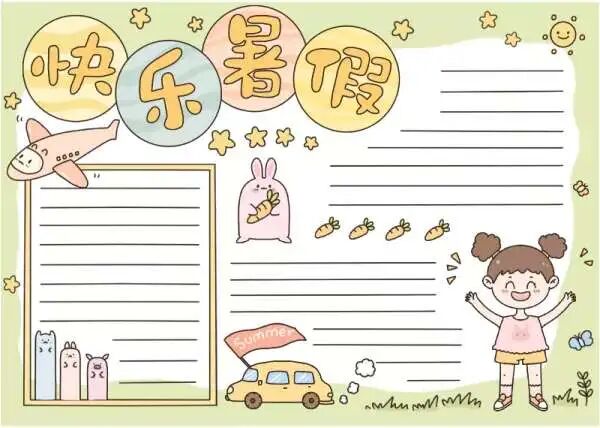 快乐暑假
Summer